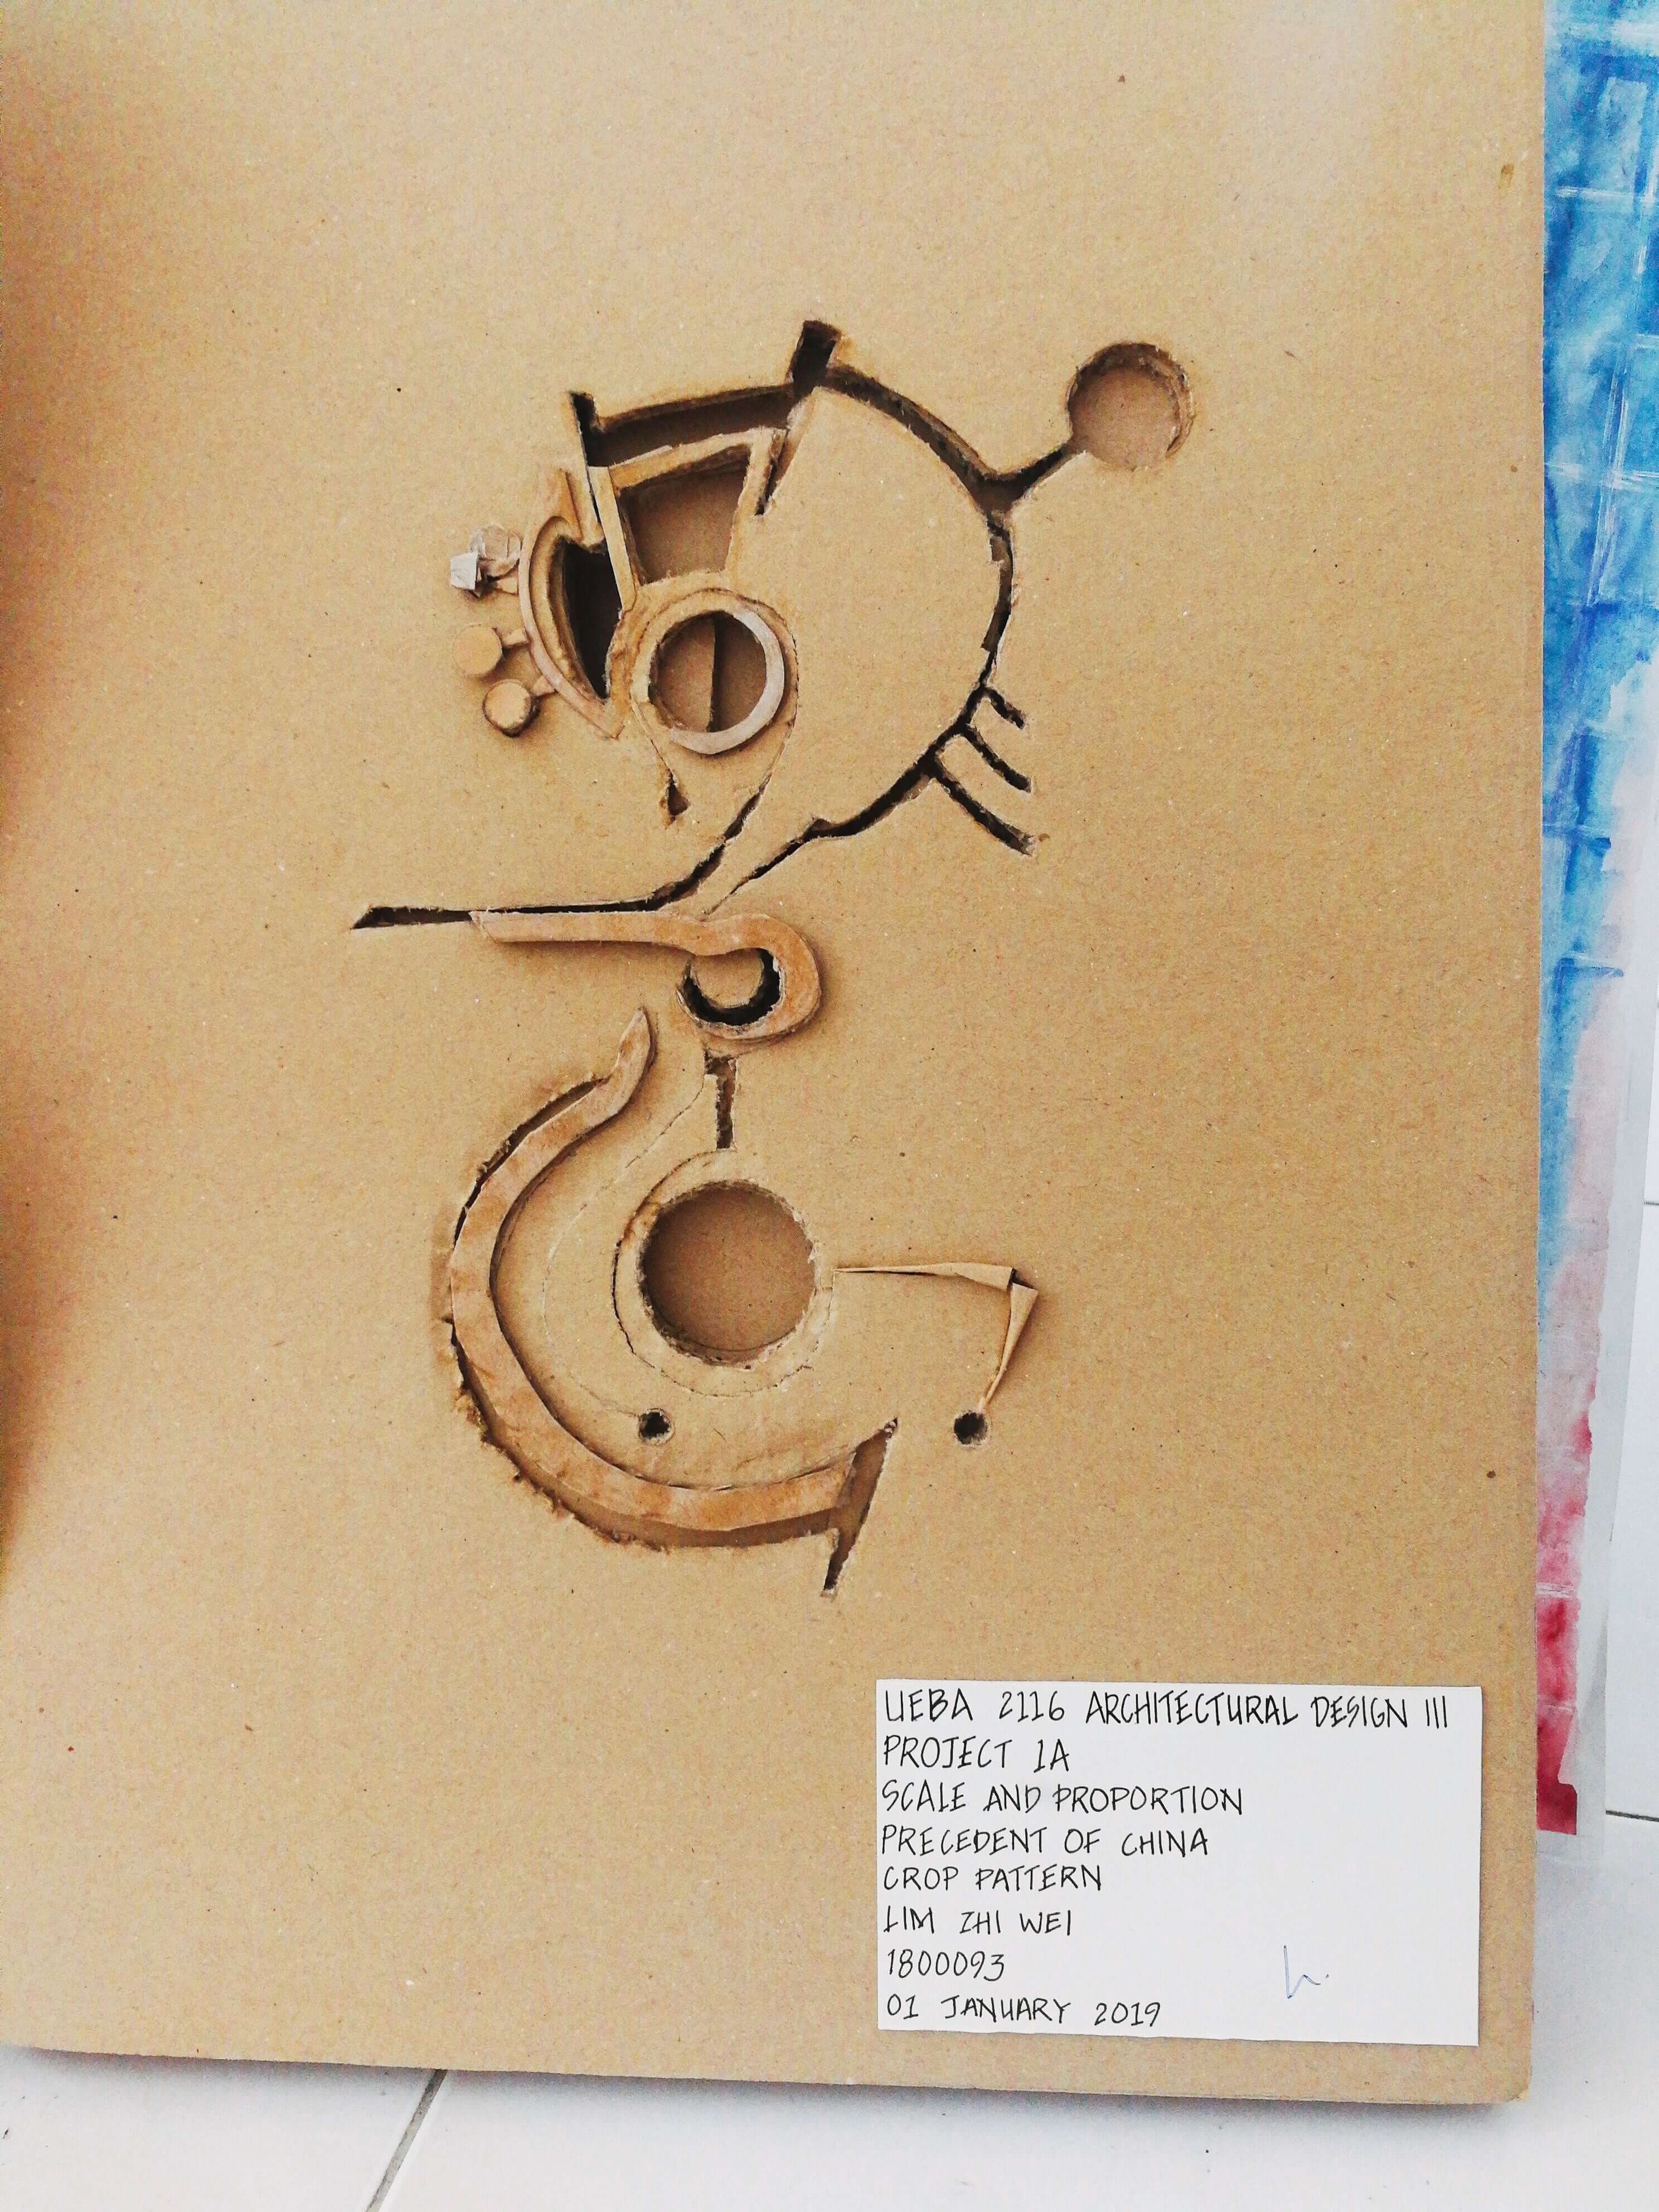 UEBA 2116 ARCHITECTURAL DESIGN III
PROJECT 1A
SCALE AND PROPORTION
PRECEDENT OF CHINA
CROP PATTERN
LIM ZHI WEI
1800093
01 JANUARY 2019